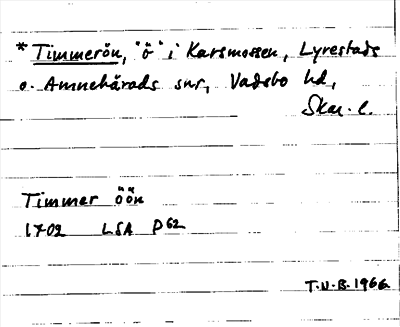 * Timmerön, "ö" i Karsmossen, Lyrestads
o. Amnehärads snr, Vadsbo hd,
Skar. l.
Timmer öön
1702 LSA P62
T.U.B. 1966.